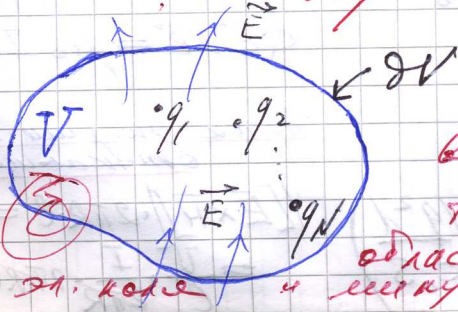 E⃗
∂V
V
q₁ q₂
E⃗
q_N
облас
эл. поля и